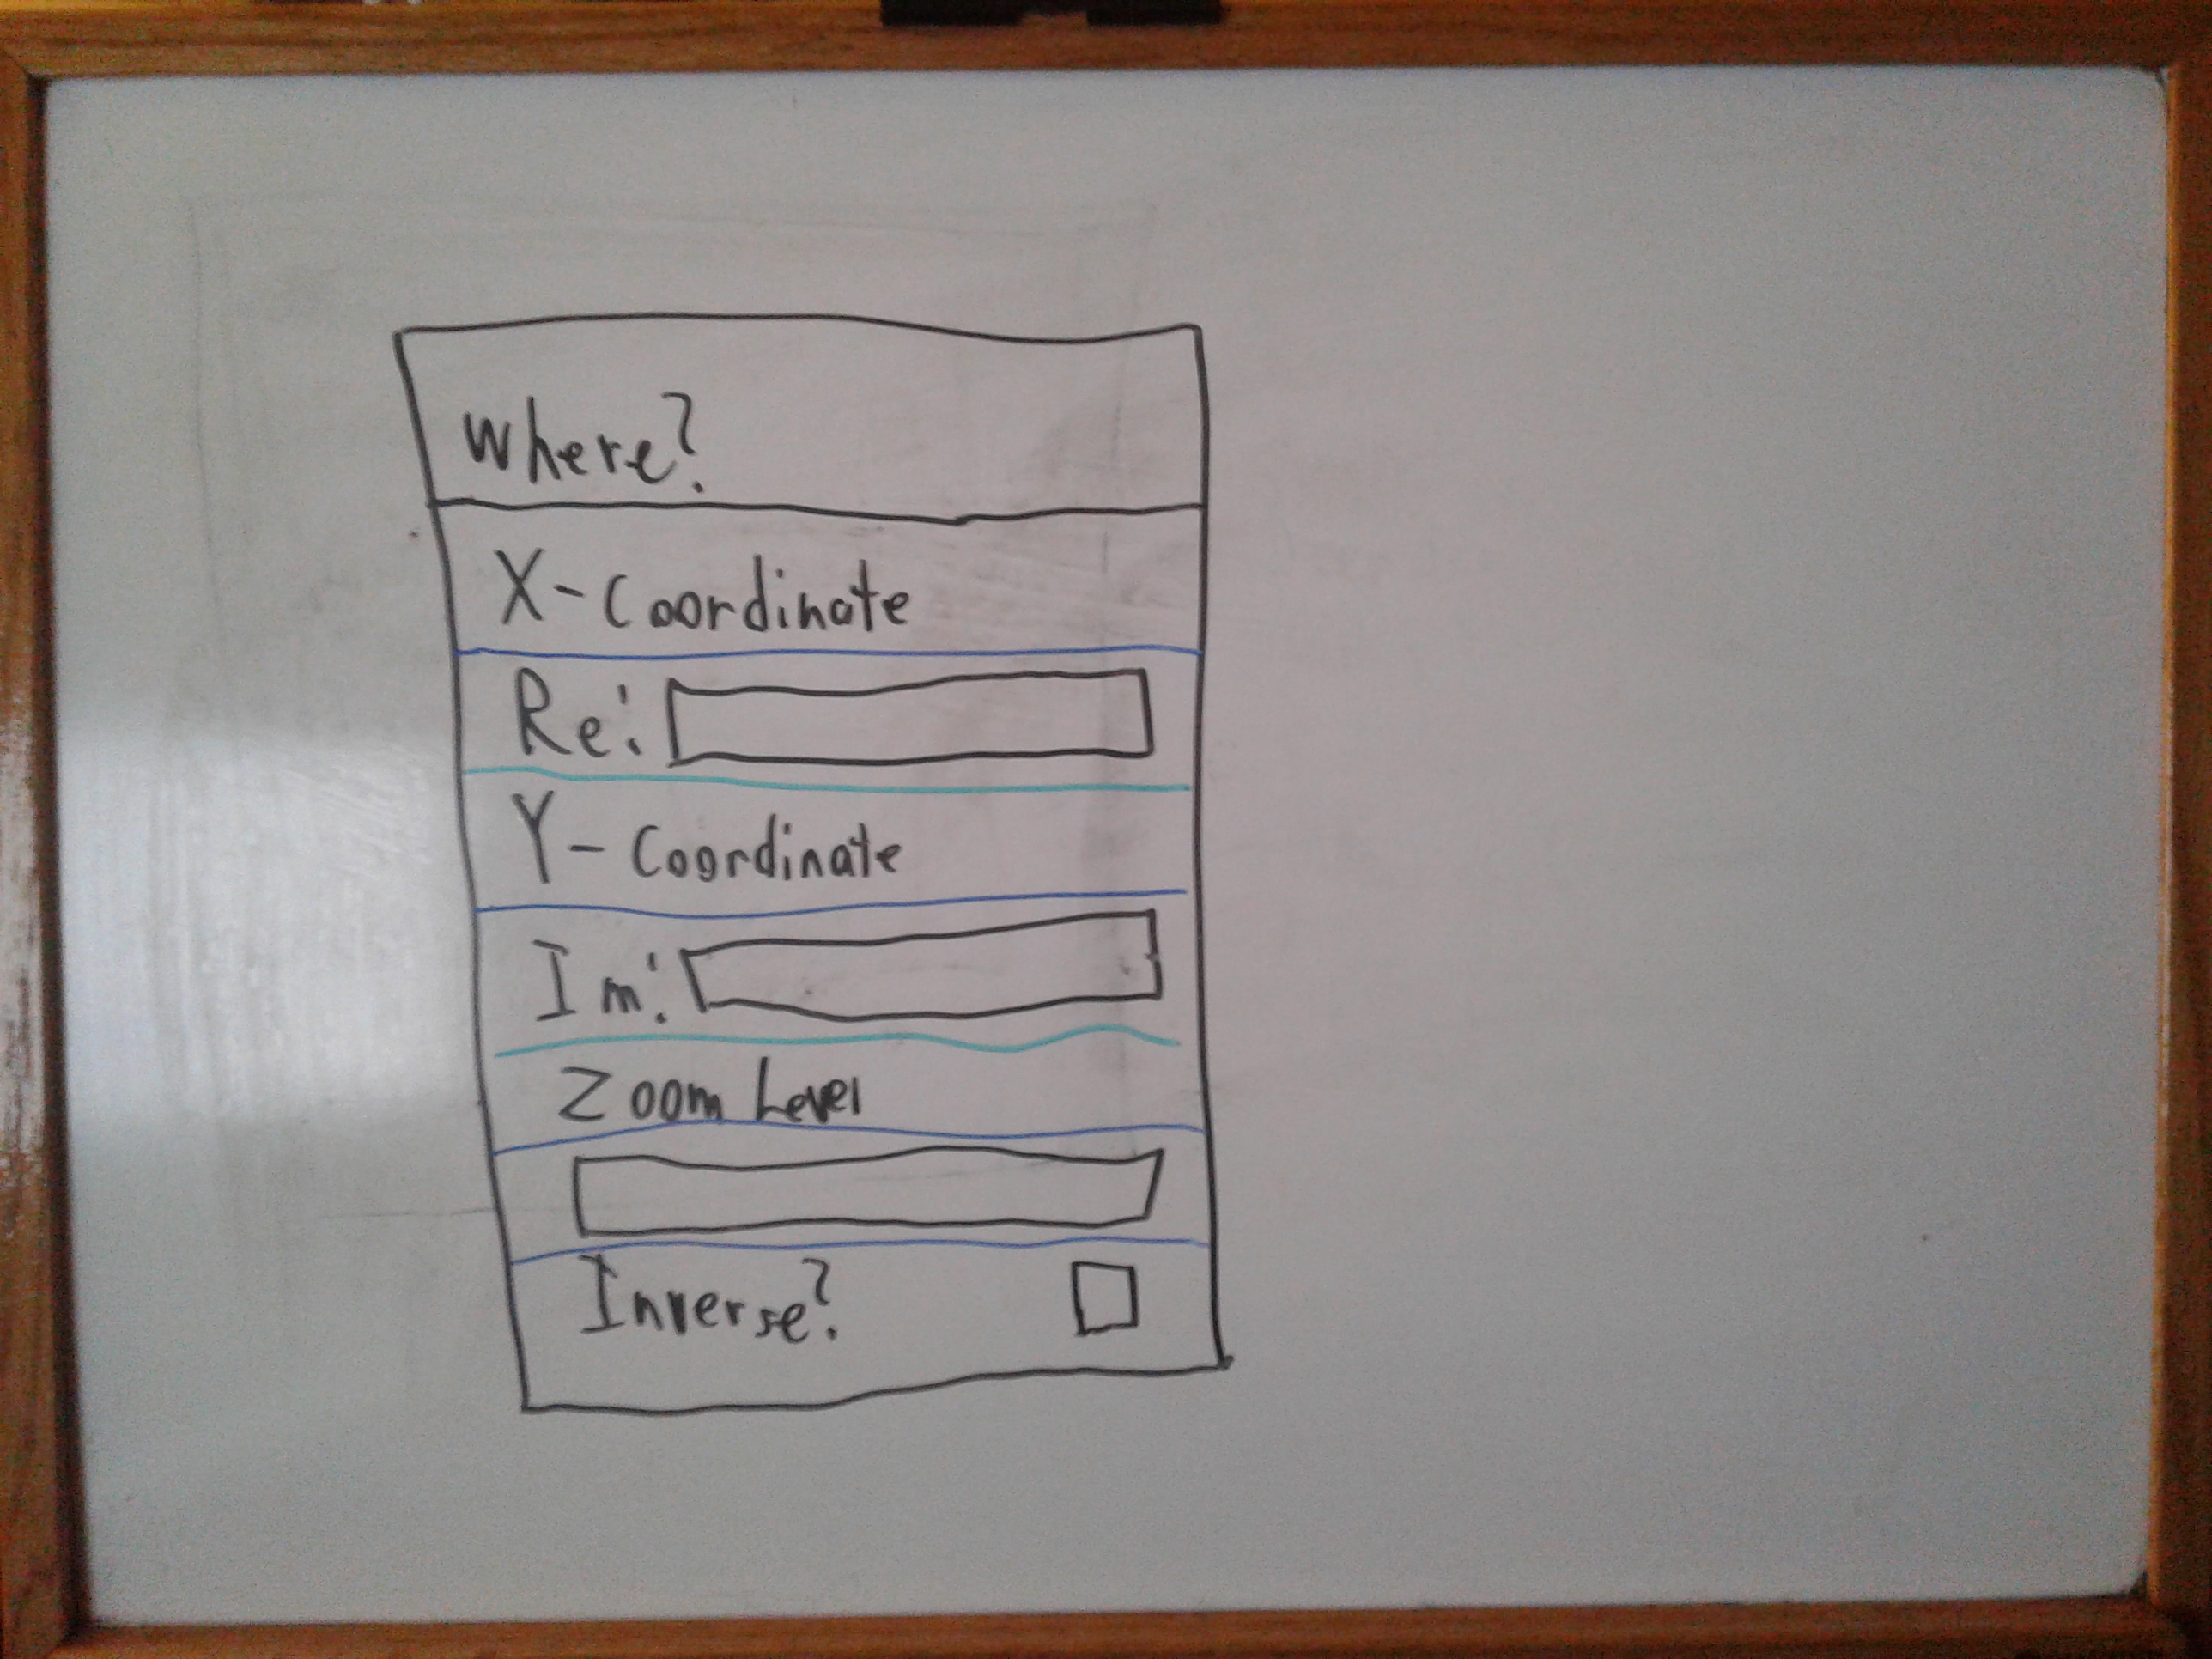 Where?
X-Coordinate
Re:
Y-Coordinate
Im:
Zoom Level
Inverse?